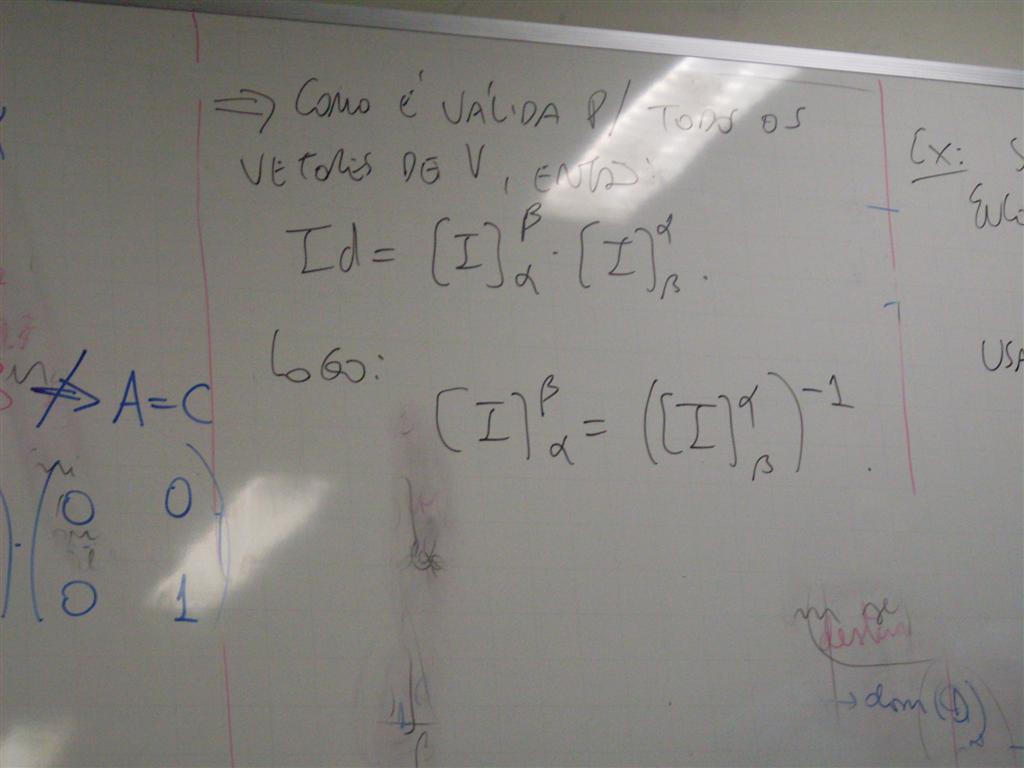 ⇒ COMO É VÁLIDA P/ TODOS OS
VETORES DE V, ENTÃO:
Id = [I]^β_α · [I]^α_β .
LOGO:
[I]^β_α = ([I]^α_β)^-1 .
⇏ A=C
0 0
0 1
EX:
USA
→ dom